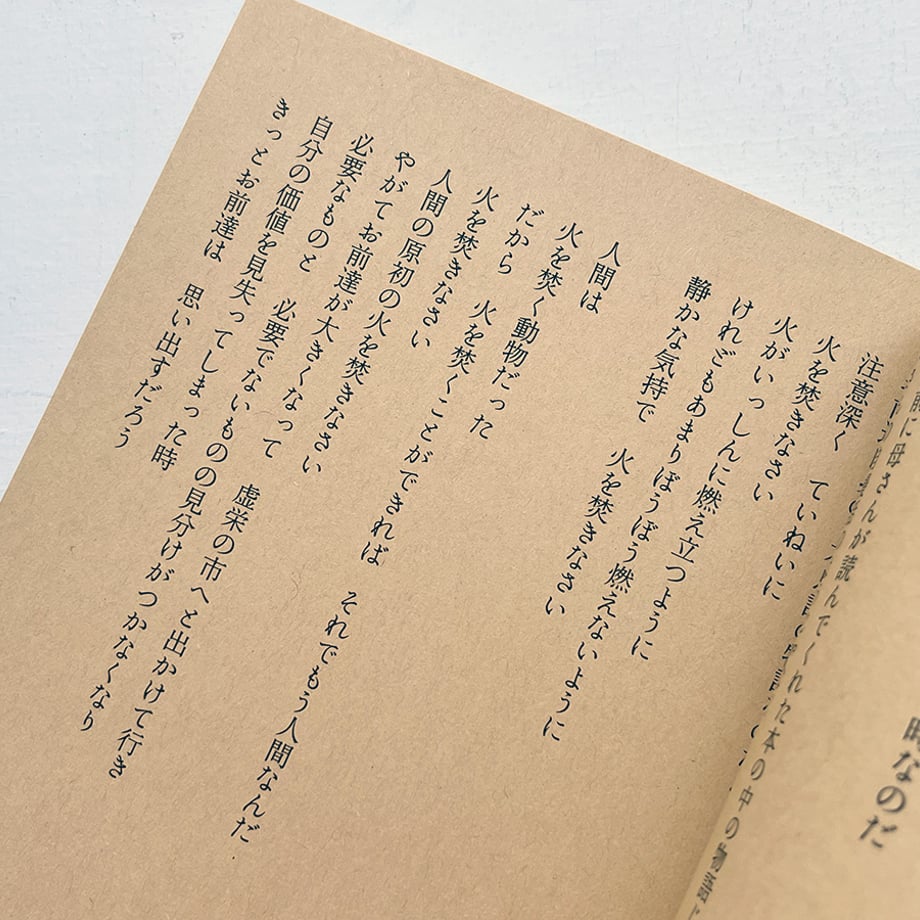 時なのだ
前に母さんが読んでくれた本の中の物語
注意深く　ていねいに
火を焚きなさい
火がいっしんに燃え立つように
けれどもあまりぼうぼう燃えないように
静かな気持で　火を焚きなさい
人間は
火を焚く動物だった
だから　火を焚くことができれば　それでもう人間なんだ
火を焚きなさい
人間の原初の火を焚きなさい
やがてお前達が大きくなって　虚栄の市へと出かけて行き
必要なものと　必要でないものの見分けがつかなくなり
自分の価値を見失ってしまった時
きっとお前達は　思い出すだろう